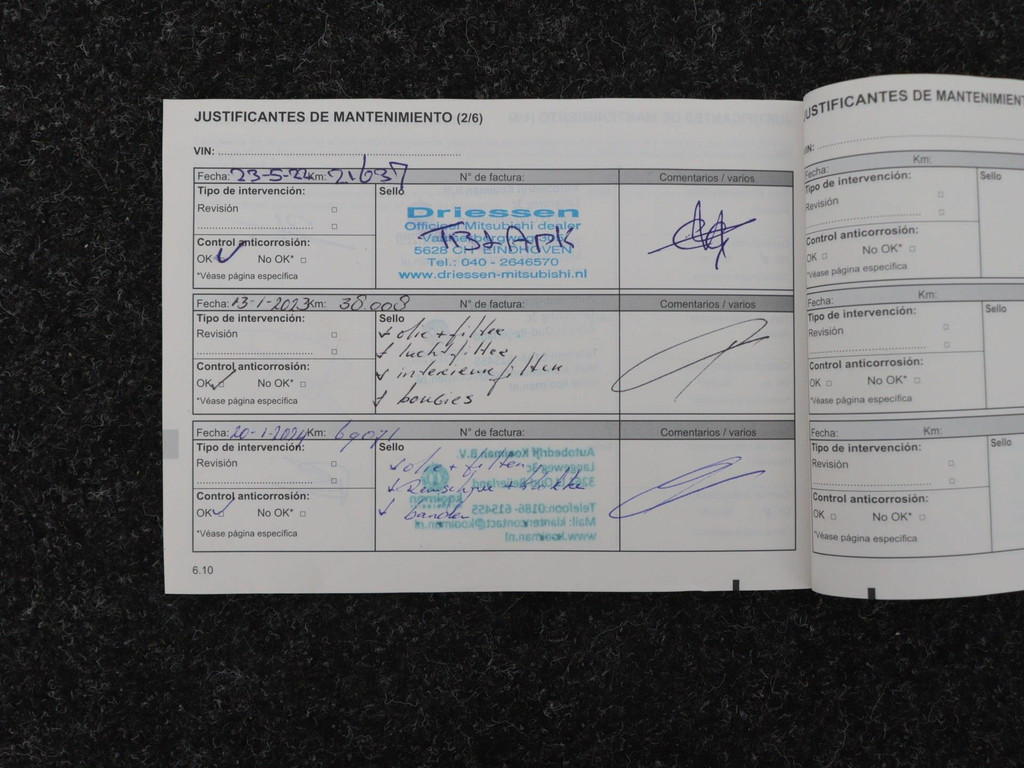 JUSTIFICANTES DE MANTENIMIENTO (2/6)
VIN:
Fecha: Km: 21637 N° de factura: Comentarios / varios
Tipo de intervención: Sello
Revisión
Driessen
Officieel Mitsubishi dealer
Control anticorrosión:
OK No OK*
5628 EINDHOVEN
Tel.: 040 - 2646570
www.driessen-mitsubishi.nl
*Véase página específica
Fecha: 13-1-2023 Km: 38.008 N° de factura: Comentarios / varios
Tipo de intervención: Sello
Revisión
olie + filter
luchtfilter
Control anticorrosión:
interieurfilter
OK No OK*
bougies
*Véase página específica
Fecha: 20-1-2024 Km: 69071 N° de factura: Comentarios / varios
Tipo de intervención: Sello
Revisión
olie + filter
Control anticorrosión:
OK No OK*
banden
*Véase página específica
6.10
JUSTIFICANTES DE MANTENIMIENT
VIN:
Fecha: Km:
Tipo de intervención: Sello
Revisión
Control anticorrosión:
OK No OK*
*Véase página específica
Fecha: Km:
Tipo de intervención: Sello
Revisión
Control anticorrosión:
OK No OK*
*Véase página específica
Fecha: Km:
Tipo de intervención: Sello
Revisión
Control anticorrosión:
OK No OK*
*Véase página específica